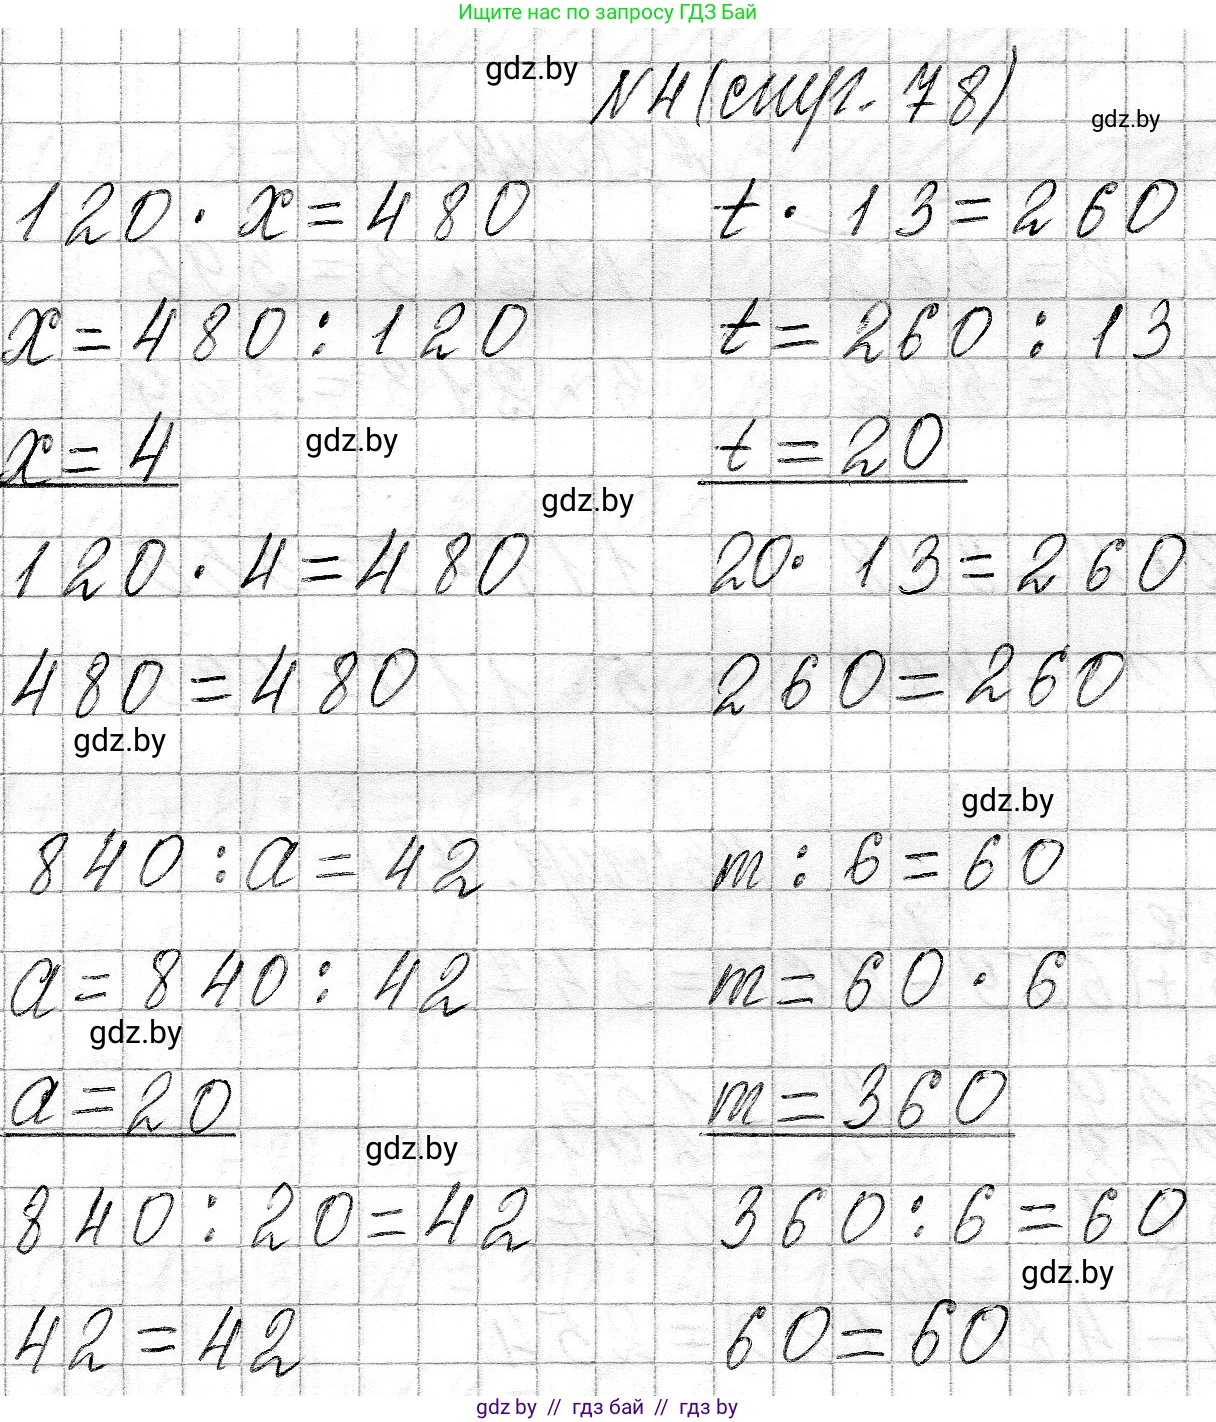 Ищите нас по запросу ГДЗ Бай
gdz.by
№4 (стр. 78)
gdz.by
120 · x = 480
x = 480 : 120
x = 4
gdz.by
gdz.by
120 · 4 = 480
480 = 480
gdz.by
t · 13 = 260
t = 260 : 13
t = 20
20 · 13 = 260
260 = 260
gdz.by
840 : a = 42
a = 840 : 42
gdz.by
a = 20
gdz.by
840 : 20 = 42
42 = 42
m : 6 = 60
m = 60 · 6
m = 360
360 : 6 = 60
gdz.by
60 = 60
gdz by // гдз бай // гдз by